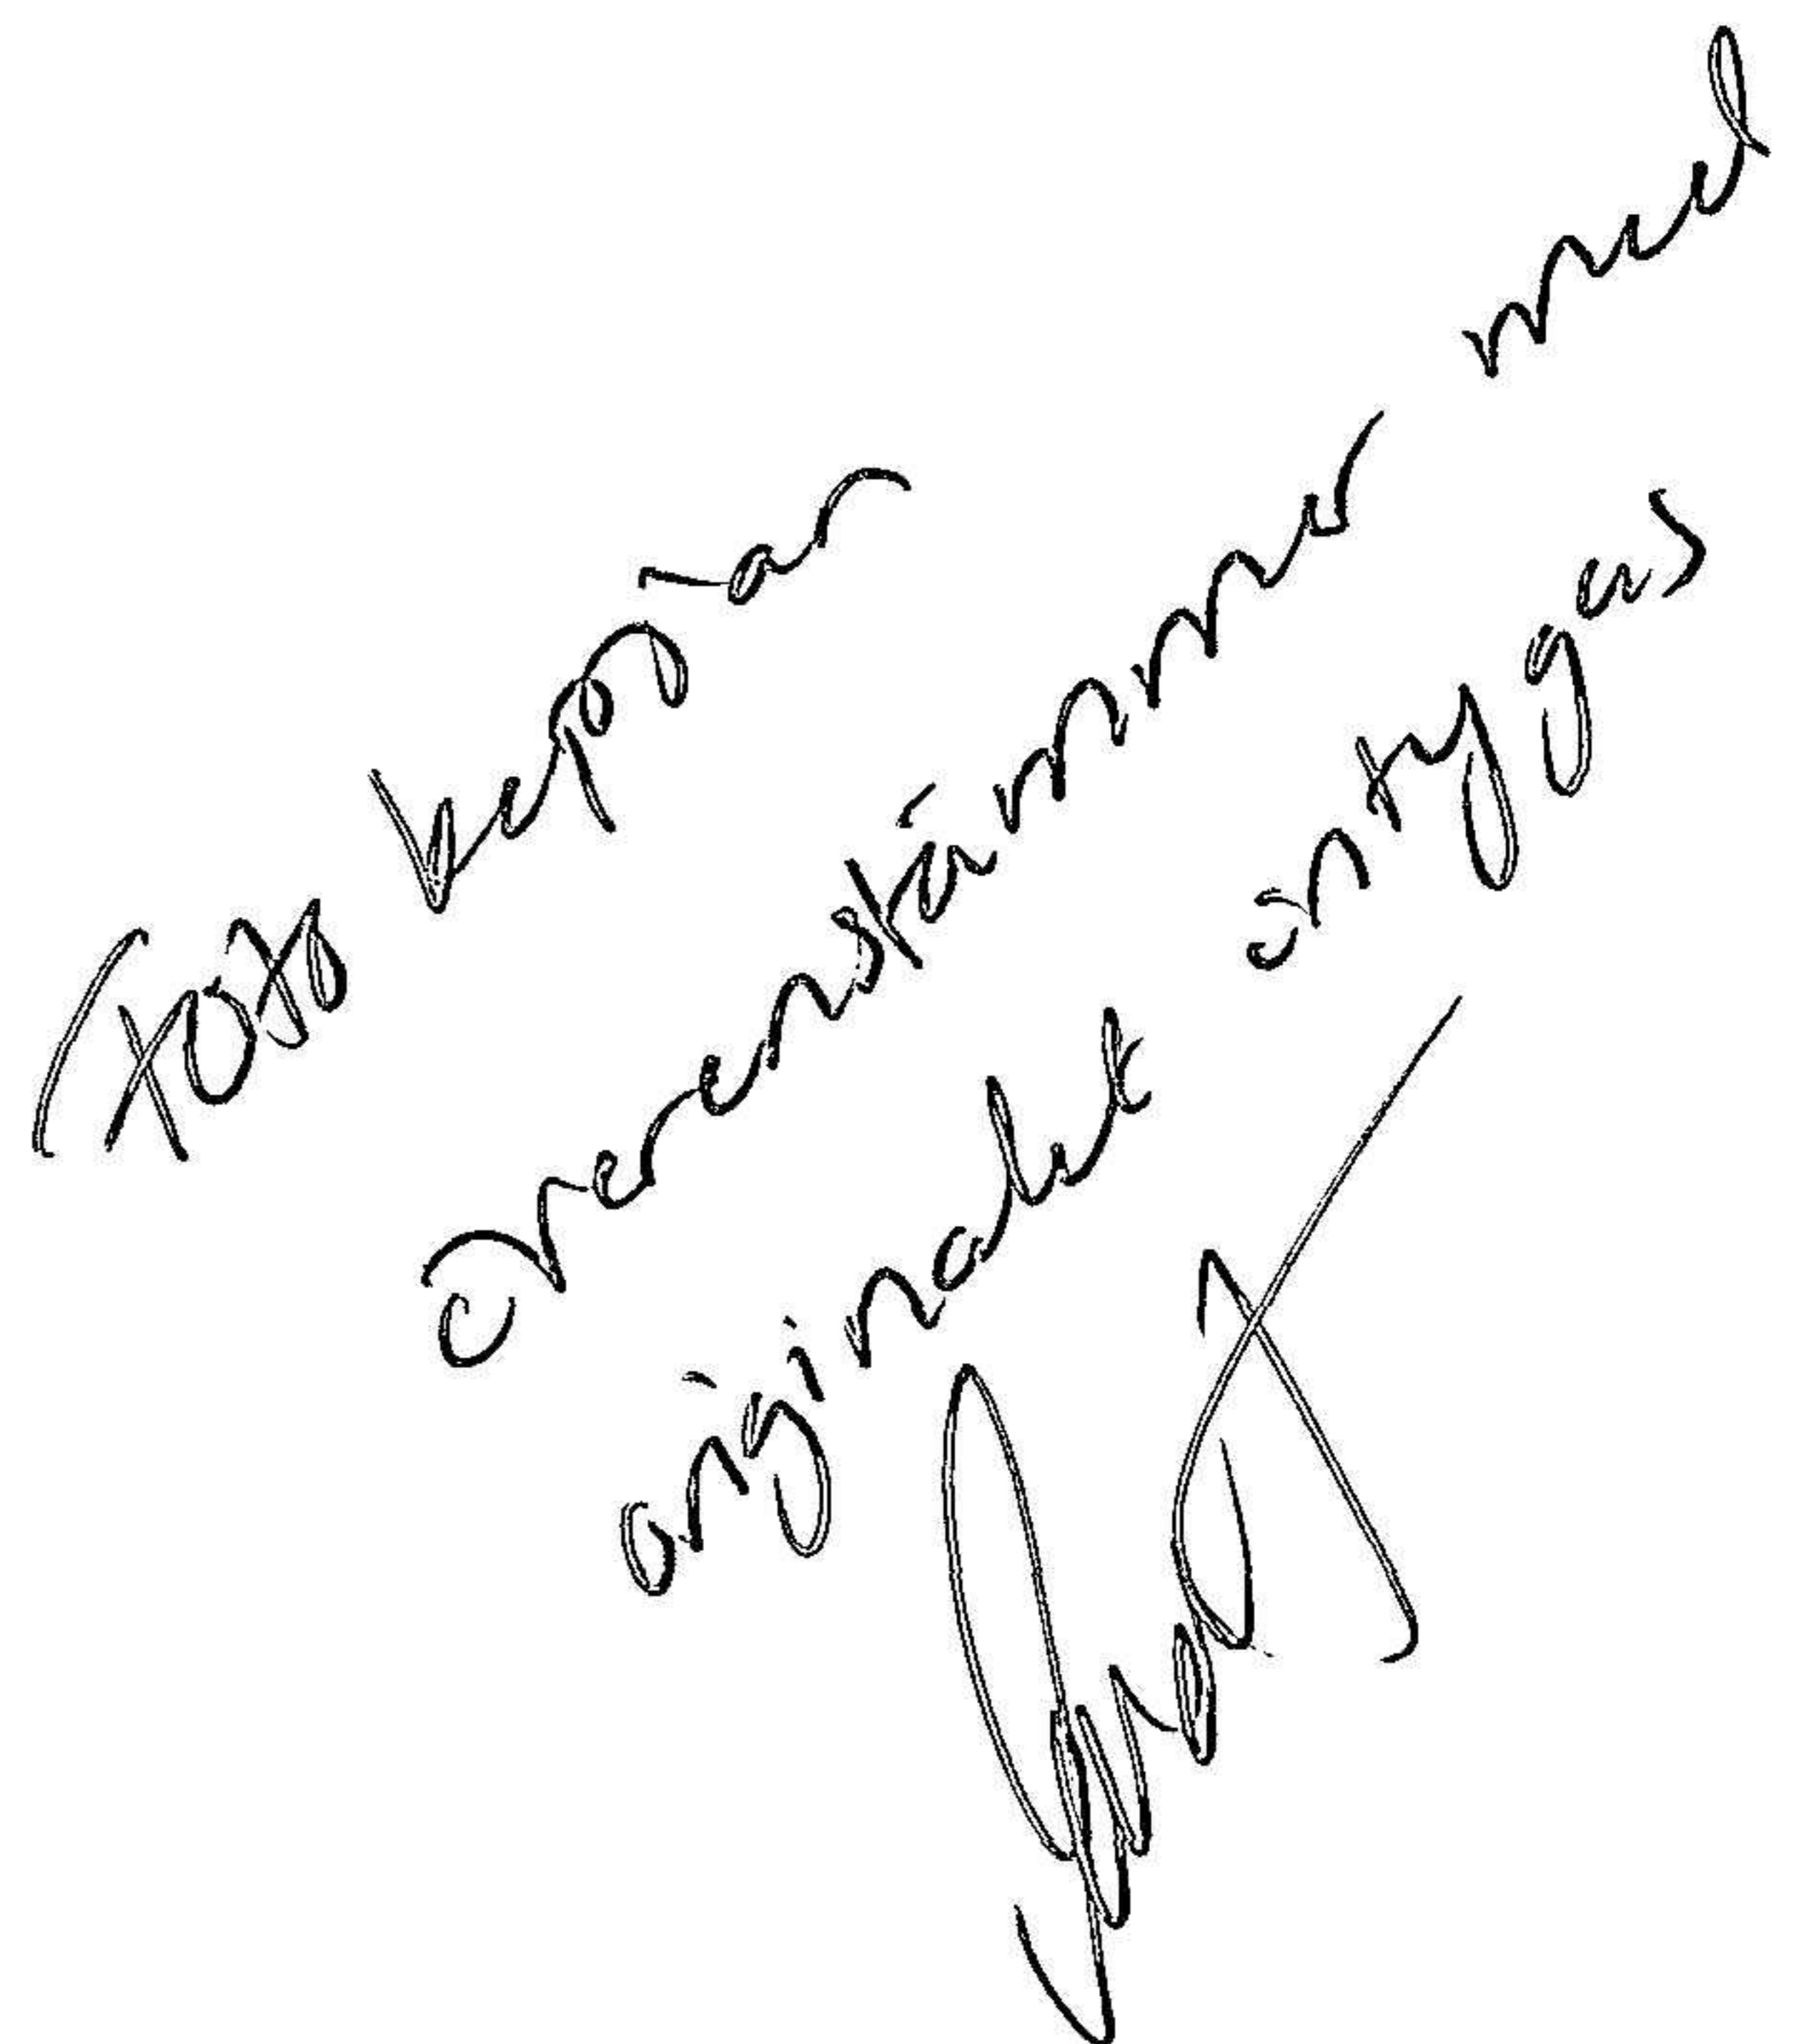 Foto kopian
överenstämmer med
originalet intygas